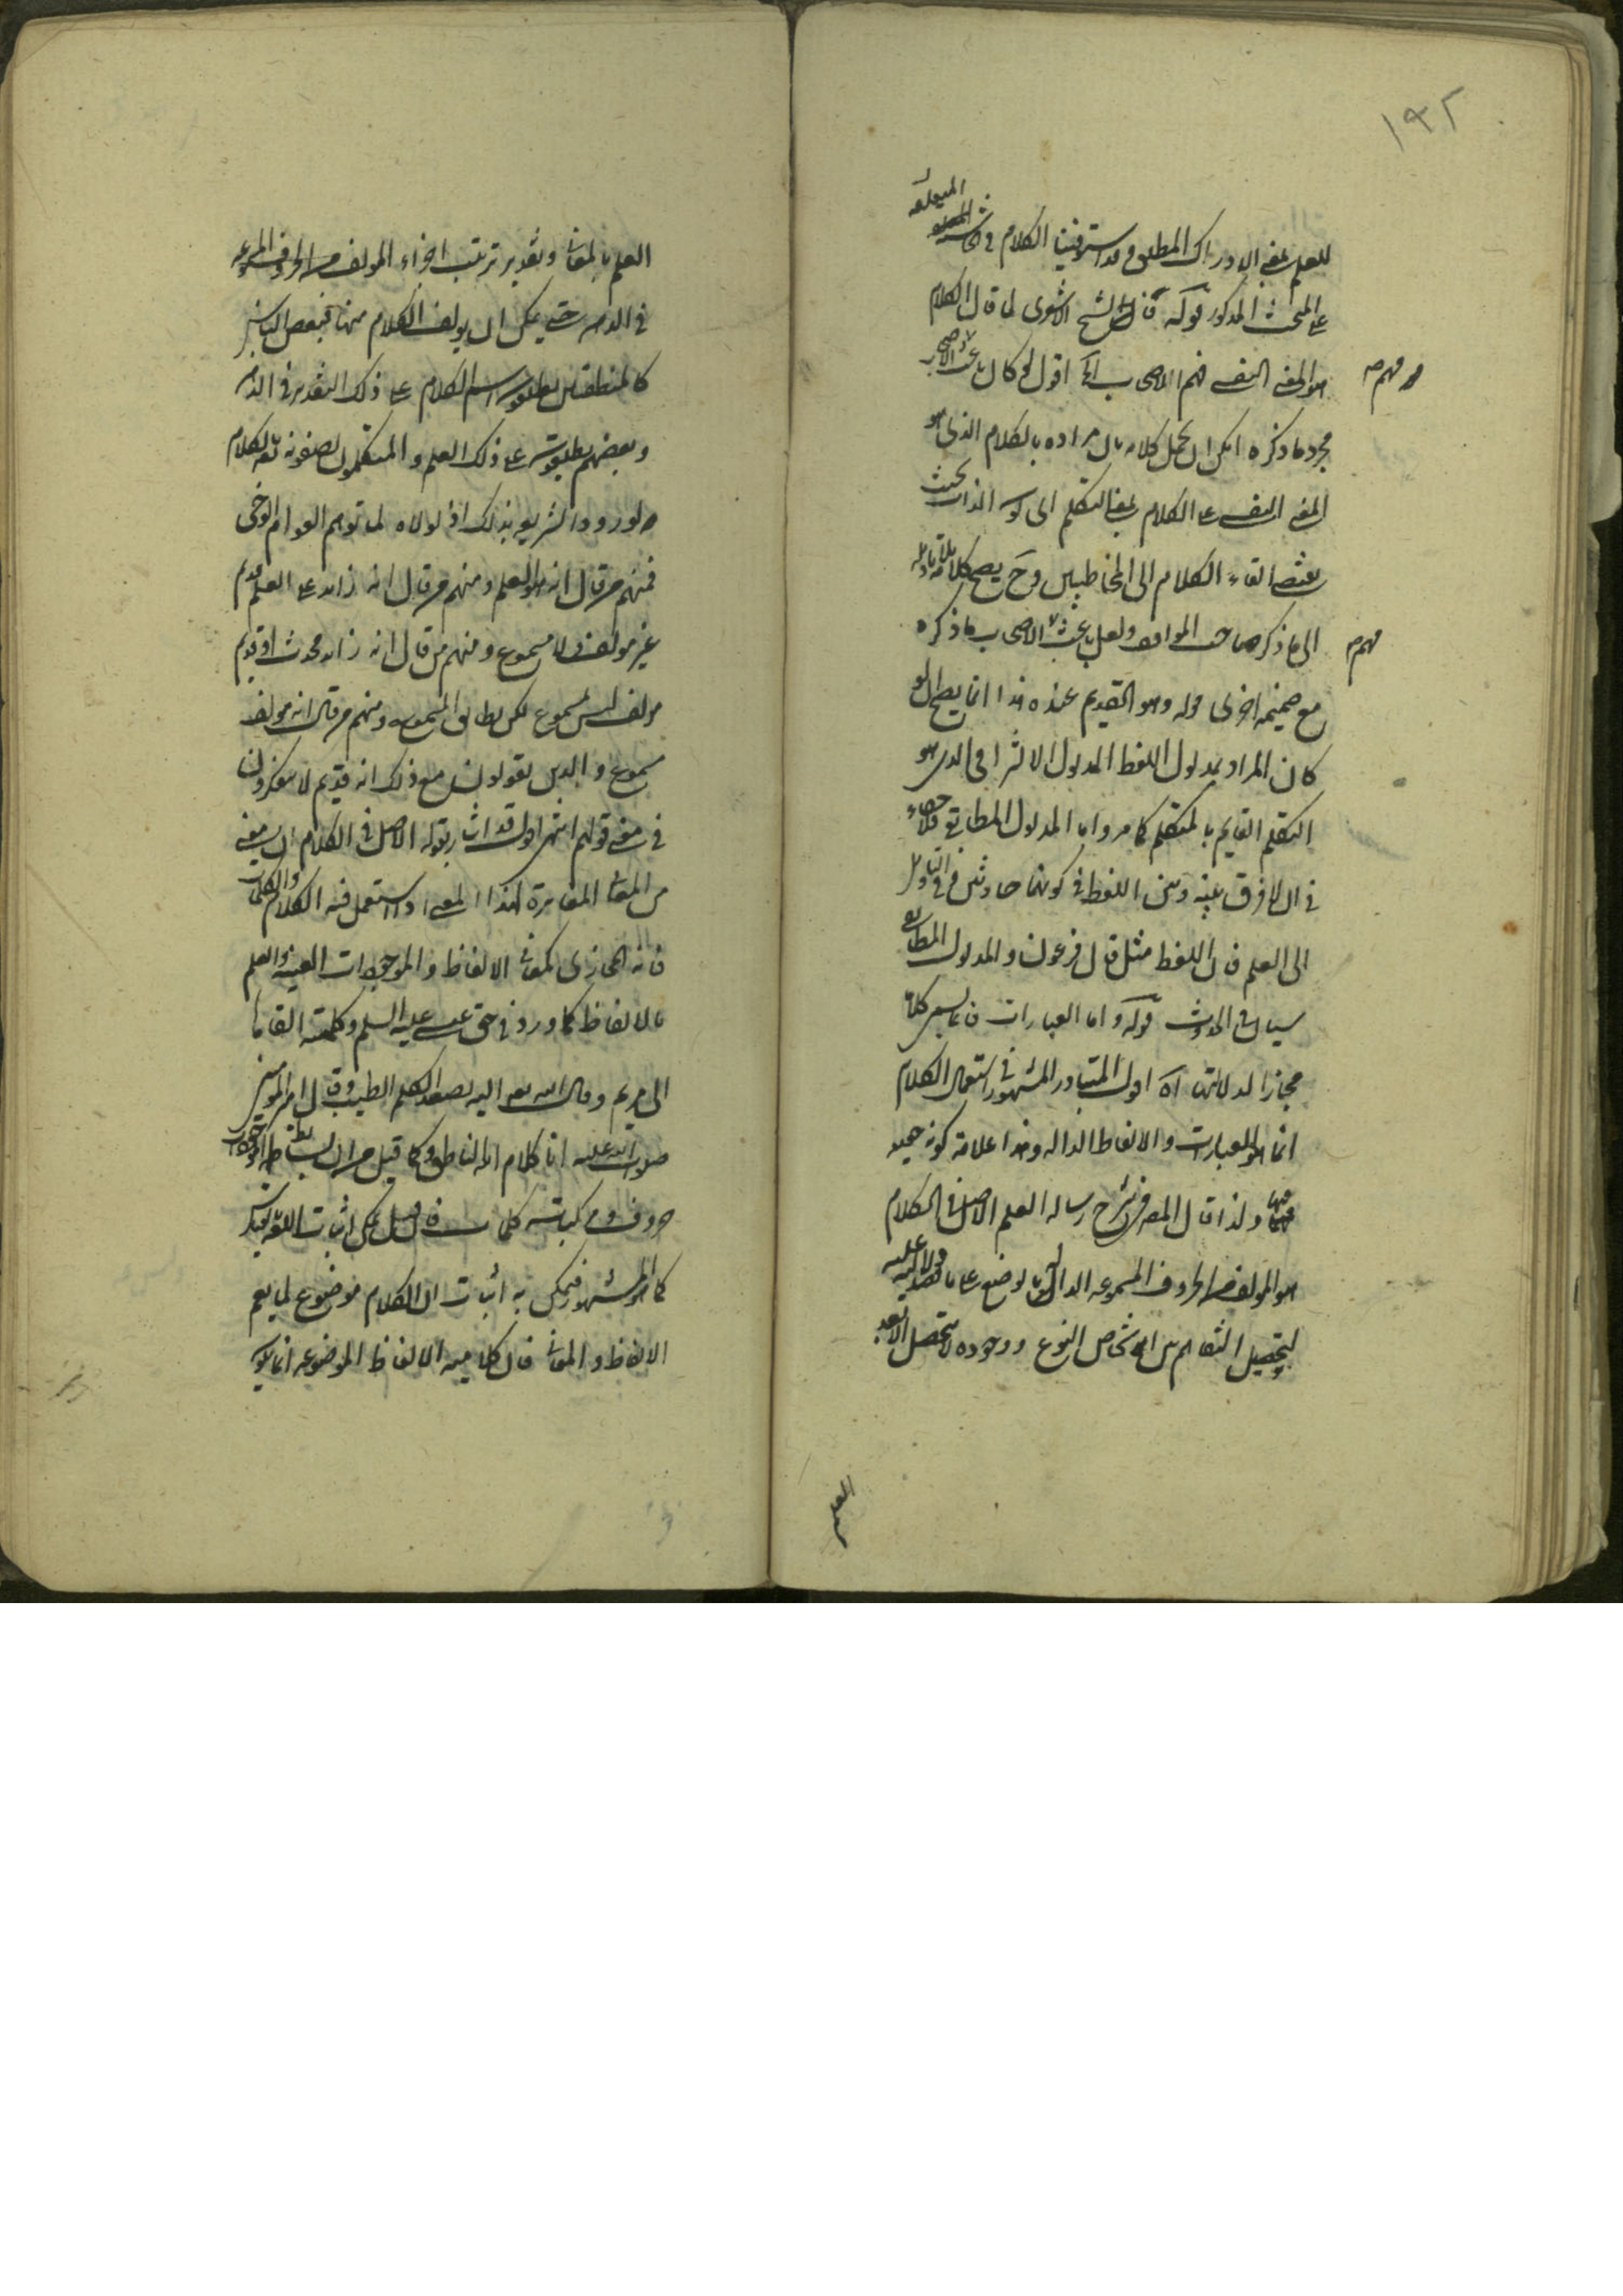 ١٩٢
للعلم بمعنى الادراك المطلق وقد استوفينا الكلام في الحاشية المتعلقة
على المبحث المذكور قوله قال الشيخ الاشعرى لما قال الكلام
هو المعنى النفسى فهم الاصحاب الخ اقول لو كان باعث الاصحاب
مجرد ما ذكره امكن ان يحمل كلامه بان مراده بالكلام الذى هو
المعنى النفسى هو الكلام بمعنى التكلم اى كون الذات بحيث
يقتضى القاء الكلام الى المخاطبين وح يصح كلامه بلا تأويله
الى ما ذكره صاحب المواقف ولعل باعث الاصحاب ما ذكره
مع ضميمة اخرى قوله وهو القديم عنده هذا انما يصح ان لو
كان المراد بمدلول اللفظ المدلول الالتزامى الذى هو
التكلم القايم بالمتكلم كما مر واما المدلول المطابقى فلا خفاء
في ان لا فرق بينه وبين اللفظ في كونهما حادثين وفي التاويل
الى العلم فان اللفظ مثل قال فرعون والمدلول المطابقى
سيان في الحدوث قوله واما العبارات فانما يسمى كلاما
مجازا لدلالتها اه اقول المتبادر المشهور في استعمال الكلام
انما هو العبارات والالفاظ الدالة وهذا علامة كونه حقيقة
فيها ولذا قال المص في شرح رسالة العلم الاصل في الكلام
هو المؤلف من الحروف المسموعة الدال بالوضع على ما قصد دلالته عليه
ليتحصيل التفاهم بين اشخاص النوع ووجوده لا يتحصل الا بعد
العلم
العلم بالمعانى وتقدير ترتيب اجزاء المؤلف من الحروف المسموعة
في الذهن حتى يمكن ان يؤلف الكلام منها فبعض الناس
كالمنطقيين يطلقون اسم الكلام على ذلك التقدير في الذهن
وبعضهم يطلقونه على ذلك العلم والمتكلمون يصفونه تعالى بالكلام
لورود الشريعة بذلك اذ لولاه لما توهم العوام الوحى
فمنهم من قال انه هو العلم ومنهم من قال انه زايد على العلم قديم
غير مؤلف ولا مسموع ومنهم من قال انه زايد محدث او قديم
مؤلف ليس بمسموع لكن يطابق المسموع ومنهم من قال انه مؤلف
مسموع والذين يقولون مع ذلك انه قديم لا يتفكرون
في معنى قولهم انتهى اقول قد اشار بقوله الاصل في الكلام ان يعنى
من المعانى المغايرة لهذا المعنى اذا استعمل فيه الكلام والكلمات
فانه مجازى كمعانى الالفاظ والموجودات العينية والعلم
بالالفاظ كما ورد في حق عيسى عليه السلم وكلمته القاها
الى مريم وقال الله تعالى اليه يصعد الكلم الطيب وقال امير المؤمنين
صلوات الله عليه انا كلام الله الناطق وكما قيل من ان بسايط الموجودات
حروف ومركباته كلمات فان قيل يمكن اثبات اللغة بالقياس
كما هو المشهور فيمكن به اثبات ان الكلام موضوع لما يعم
الالفاظ والمعانى فان كلامية الالفاظ الموضوعة انما يكون